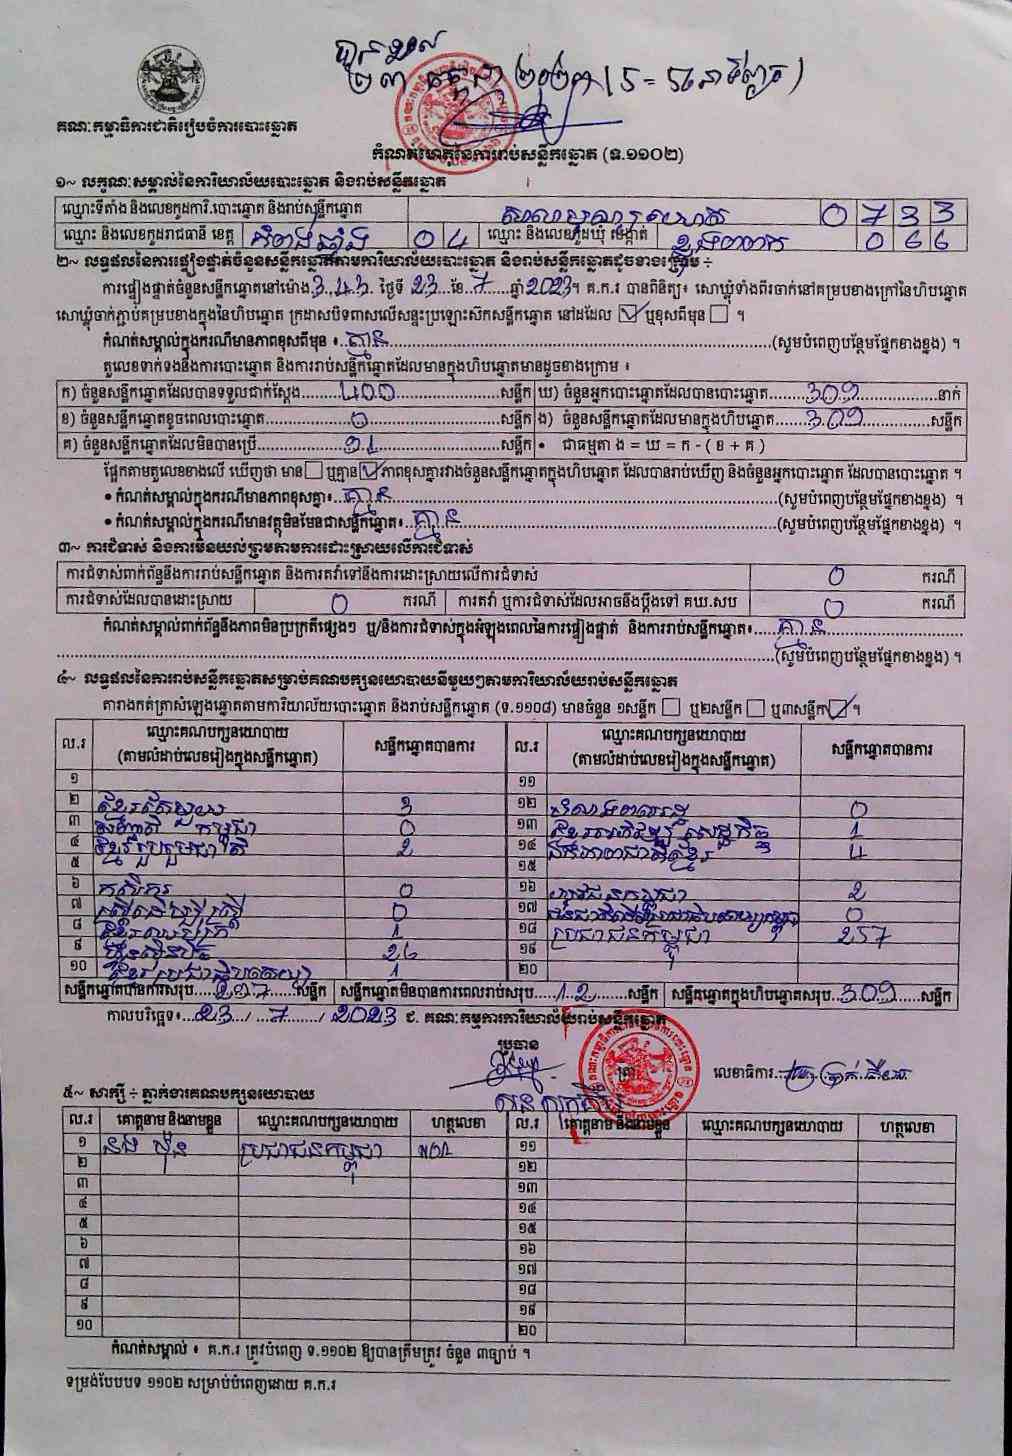 ២៣ កក្កដា ២០២៣
គណៈកម្មាធិការជាតិរៀបចំការបោះឆ្នោត
កំណត់ហេតុនៃការរាប់សន្លឹកឆ្នោត (ទ.១១០២)
១~ លក្ខណៈសម្គាល់នៃការិយាល័យបោះឆ្នោត និងរាប់សន្លឹកឆ្នោត
ឈ្មោះទីតាំង និងលេខកូដការិ.បោះឆ្នោត និងរាប់សន្លឹកឆ្នោត 0 7 3 3
ឈ្មោះ និងលេខកូដរាជធានី ខេត្ត កំពង់ឆ្នាំង 0 4 ឈ្មោះ និងលេខកូដឃុំ សង្កាត់ 0 6 6
២~ លទ្ធផលនៃការផ្ទៀងផ្ទាត់ចំនួនសន្លឹកឆ្នោតតាមការិយាល័យបោះឆ្នោត និងរាប់សន្លឹកឆ្នោតដូចខាងក្រោម ÷
ការផ្ទៀងផ្ទាត់ចំនួនសន្លឹកឆ្នោតនៅម៉ោង 3,43 ថ្ងៃទី 23 ខែ 7 ឆ្នាំ 2023។ គ.ក.រ បានពិនិត្យ៖ សោឃ្លុំទាំងពីរចាក់នៅគម្របខាងក្រៅនៃហិបឆ្នោត
សោឃ្លុំចាក់ភ្ជាប់គម្របខាងក្នុងនៃហិបឆ្នោត ក្រដាសបិទពាសលើសន្ទះប្រឡោះស៊កសន្លឹកឆ្នោត នៅដដែល ☑ ឬខុសពីមុន ☐ ។
កំណត់សម្គាល់ក្នុងករណីមានភាពខុសពីមុន ៖ គ្មាន (សូមបំពេញបន្ថែមផ្នែកខាងខ្នង) ។
តួលេខទាក់ទងនឹងការបោះឆ្នោត និងការរាប់សន្លឹកឆ្នោតដែលមានក្នុងហិបឆ្នោតមានដូចខាងក្រោម ៖
ក) ចំនួនសន្លឹកឆ្នោតដែលបានទទួលជាក់ស្តែង 400 សន្លឹក ឃ) ចំនួនអ្នកបោះឆ្នោតដែលបានបោះឆ្នោត 309 នាក់
ខ) ចំនួនសន្លឹកឆ្នោតខូចពេលបោះឆ្នោត 0 សន្លឹក ង) ចំនួនសន្លឹកឆ្នោតដែលមានក្នុងហិបឆ្នោត 309 សន្លឹក
គ) ចំនួនសន្លឹកឆ្នោតដែលមិនបានប្រើ 91 សន្លឹក • ជាធម្មតា ង = ឃ = ក - ( ខ + គ )
ផ្អែកតាមតួលេខខាងលើ ឃើញថា មាន ☐ ឬគ្មាន ☑ ភាពខុសគ្នារវាងចំនួនសន្លឹកឆ្នោតក្នុងហិបឆ្នោត ដែលបានរាប់ឃើញ និងចំនួនអ្នកបោះឆ្នោត ដែលបានបោះឆ្នោត ។
• កំណត់សម្គាល់ក្នុងករណីមានភាពខុសគ្នា៖ គ្មាន (សូមបំពេញបន្ថែមផ្នែកខាងខ្នង) ។
• កំណត់សម្គាល់ក្នុងករណីមានវត្ថុមិនមែនជាសន្លឹកឆ្នោត៖ គ្មាន (សូមបំពេញបន្ថែមផ្នែកខាងខ្នង) ។
៣~ ការជំទាស់ និងការមិនយល់ព្រមតាមការដោះស្រាយលើការជំទាស់
ការជំទាស់ពាក់ព័ន្ធនឹងការរាប់សន្លឹកឆ្នោត និងការតវ៉ាទៅនឹងការដោះស្រាយលើការជំទាស់ 0 ករណី
ការជំទាស់ដែលបានដោះស្រាយ 0 ករណី ការតវ៉ា ឬការជំទាស់ដែលអាចនឹងប្តឹងទៅ គឃ.សប 0 ករណី
កំណត់សម្គាល់ពាក់ព័ន្ធនឹងភាពមិនប្រក្រតីផ្សេងៗ ឬ/និងការជំទាស់ក្នុងអំឡុងពេលនៃការផ្ទៀងផ្ទាត់ និងការរាប់សន្លឹកឆ្នោត៖ គ្មាន
(សូមបំពេញបន្ថែមផ្នែកខាងខ្នង) ។
៤~ លទ្ធផលនៃការរាប់សន្លឹកឆ្នោតសម្រាប់គណបក្សនយោបាយនីមួយៗតាមការិយាល័យរាប់សន្លឹកឆ្នោត
តារាងកត់ត្រាសំឡេងឆ្នោតតាមការិយាល័យបោះឆ្នោត និងរាប់សន្លឹកឆ្នោត (ទ.១១០៨) មានចំនួន ១សន្លឹក ☐ ឬ២សន្លឹក ☐ ឬ៣សន្លឹក ☑ ។
ល.រ ឈ្មោះគណបក្សនយោបាយ (តាមលំដាប់លេខរៀងក្នុងសន្លឹកឆ្នោត) សន្លឹកឆ្នោតបានការ ល.រ ឈ្មោះគណបក្សនយោបាយ (តាមលំដាប់លេខរៀងក្នុងសន្លឹកឆ្នោត) សន្លឹកឆ្នោតបានការ
១ ១១
២ ១២ 0
៣ កម្ពុជា 0 ១៣ ខ្មែរអភិវឌ្ឍន៍សេដ្ឋកិច្ច 1
៤ ខ្មែររួបរួមជាតិ 2 ១៤ ឯកភាពជាតិខ្មែរ 4
៥ ១៥
៦ កសិករ 0 ១៦ យុវជនកម្ពុជា 2
៧ ស្ត្រីដើម្បីស្ត្រី 0 ១៧ 0
៨ 1 ១៨ ប្រជាជនកម្ពុជា 257
៩ ហ៊្វុនស៊ិនប៉ិច 26 ១៩
១០ 1 ២០
សន្លឹកឆ្នោតបានការសរុប 297 សន្លឹក សន្លឹកឆ្នោតមិនបានការពេលរាប់សរុប 12 សន្លឹក សន្លឹកឆ្នោតក្នុងហិបឆ្នោតសរុប 309 សន្លឹក
កាលបរិច្ឆេទ៖ 23 / 7 / 2023 ជ. គណៈកម្មការការិយាល័យរាប់សន្លឹកឆ្នោត
ប្រធាន
ត្រា លេខាធិការ
៥~ សាក្សី ÷ ភ្នាក់ងារគណបក្សនយោបាយ
ល.រ គោត្តនាម និងនាមខ្លួន ឈ្មោះគណបក្សនយោបាយ ហត្ថលេខា ល.រ គោត្តនាម និងនាមខ្លួន ឈ្មោះគណបក្សនយោបាយ ហត្ថលេខា
១ ប្រជាជនកម្ពុជា ១១
២ ១២
៣ ១៣
៤ ១៤
៥ ១៥
៦ ១៦
៧ ១៧
៨ ១៨
៩ ១៩
១០ ២០
កំណត់សម្គាល់ ៖ គ.ក.រ ត្រូវបំពេញ ទ.១១០២ ឱ្យបានត្រឹមត្រូវ ចំនួន ៣ច្បាប់ ។
ទម្រង់បែបបទ ១១០២ សម្រាប់បំពេញដោយ គ.ក.រ